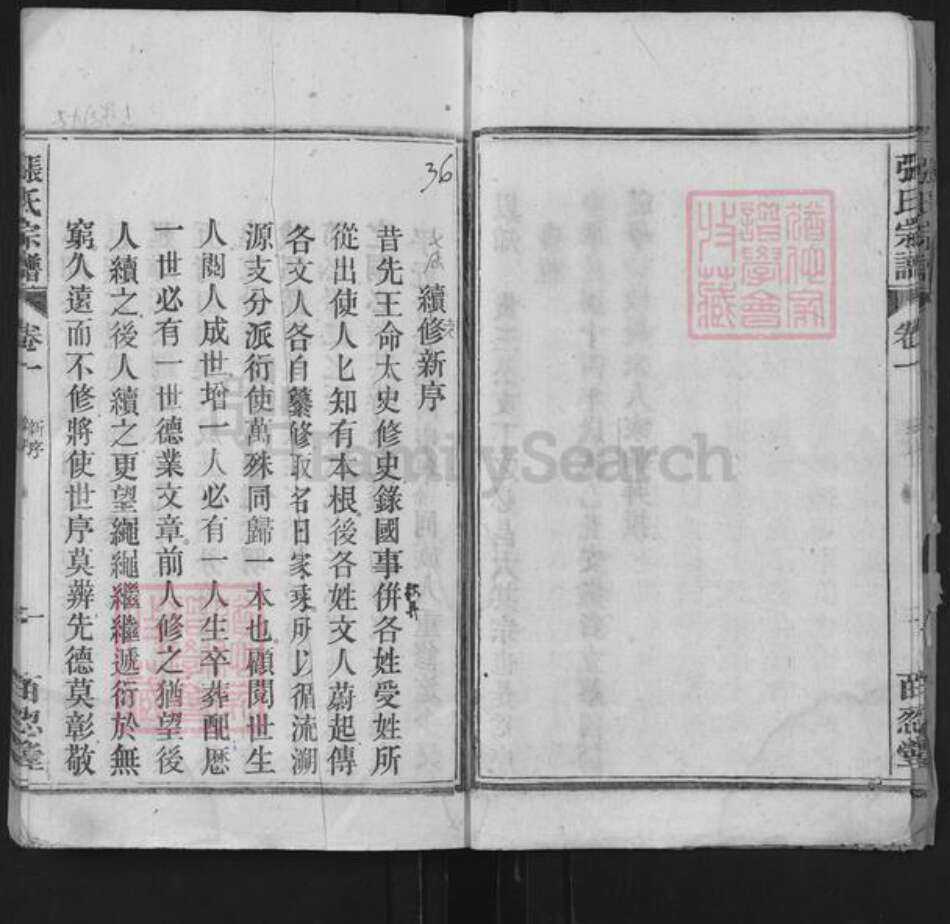 張氏宗譜
卷一
36
續修新序
昔先王命太史修史錄國事併各姓受姓所
從出使人匕知有本根後各姓文人蔚起傳
各文人各自纂修取名曰家乘所以循流溯
源支分派衍使萬殊同歸一本也顧閱世生
人閱人成世增一人必有一人生卒葬配歷
一世必有一世德業文章前人修之猶望後
人續之後人續之更望繩繩繼繼遞衍於無
窮久遠而不修將使世序莫辨先德莫彰敬
張氏宗譜
卷一
新序
一
FamilySearch